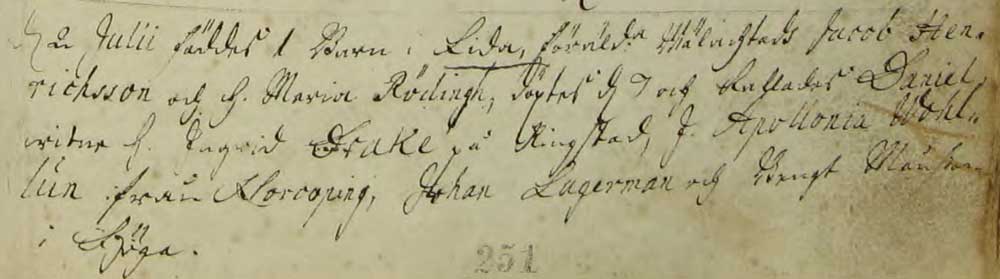 d 2 Julii föddes 1 Barn i Eida, föräld:a Wälachtads Jacob Hen-
richsson och h. Maria Rödingh, döptes d 7 och kallades Daniel,
witne h. Ingrid Drake på Ringstad, J. Apollonia Wohl-
lun från Norcoping, Johan Lagerman och Bengt Månsson
i Höga.
251